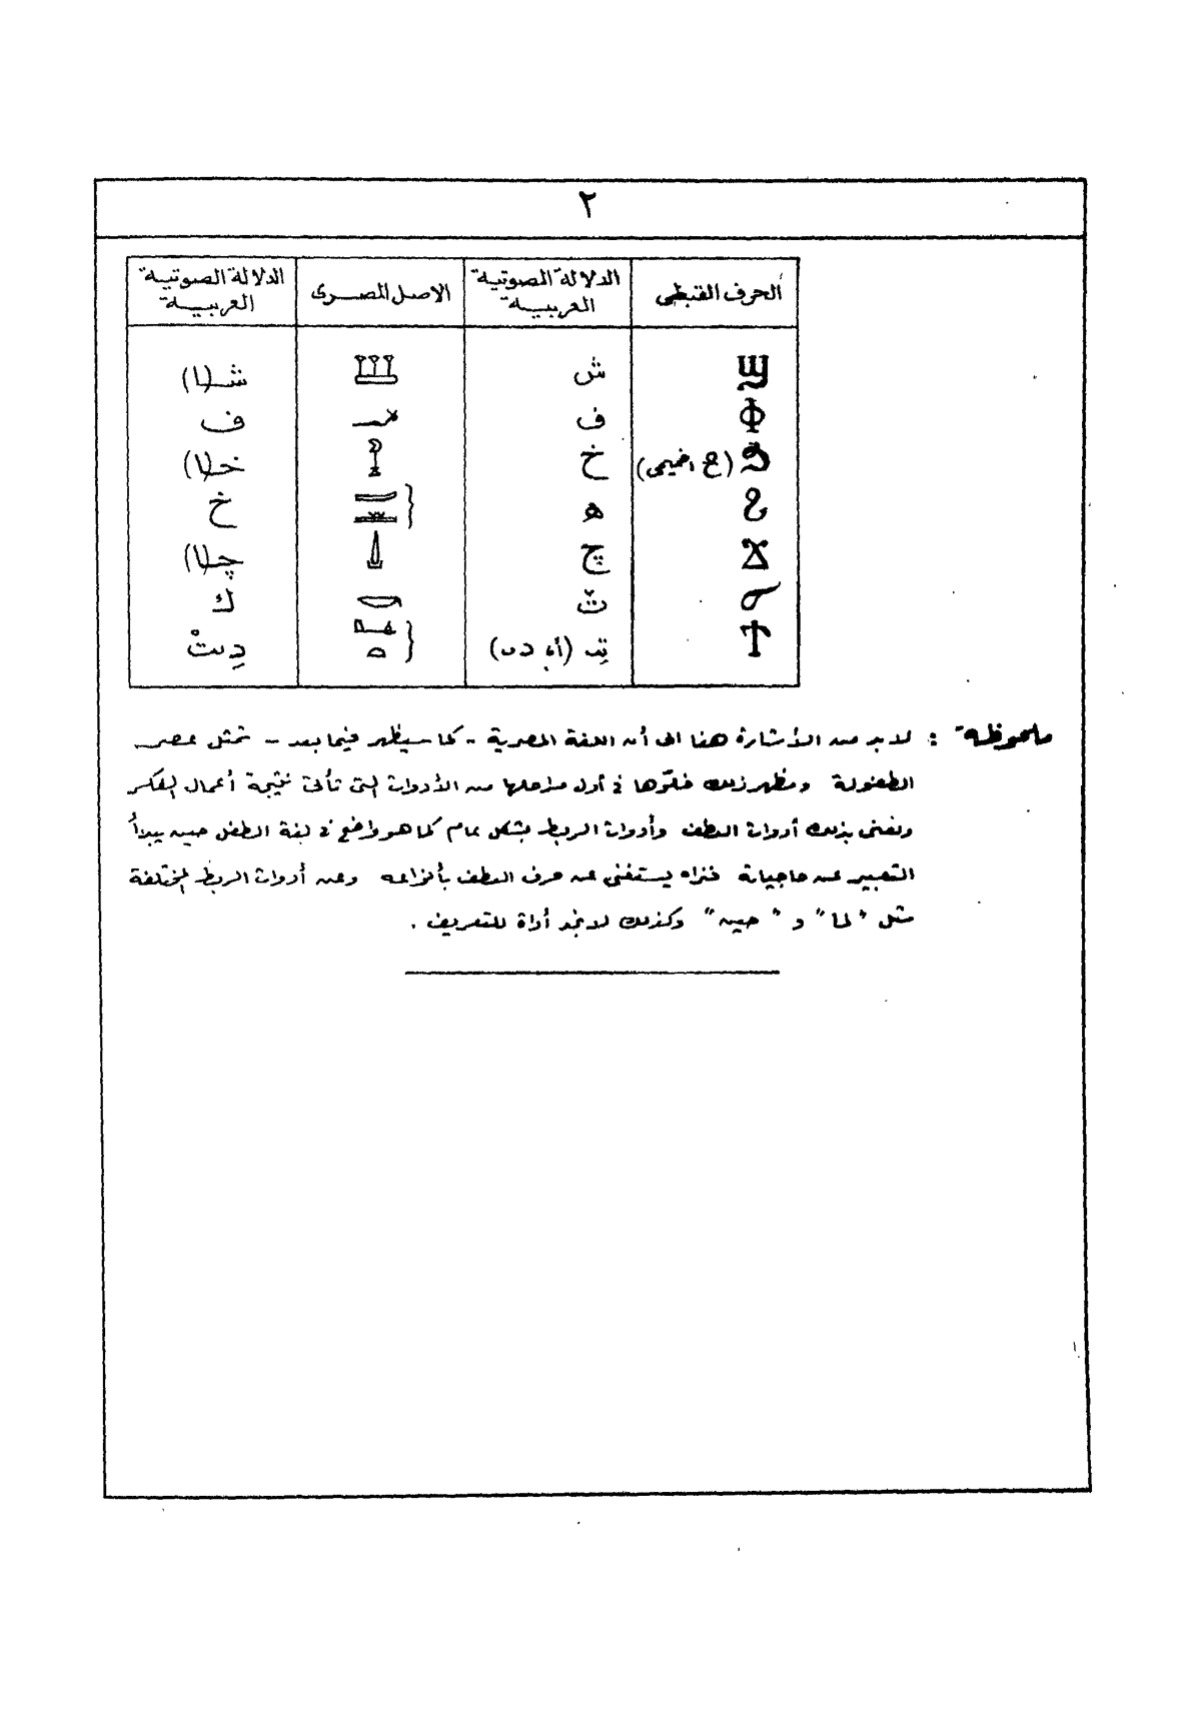 ٢
الحرف القبطي	الدلالة الصوتية العربية	الاصل المصرى	الدلالة الصوتية العربية
ϣ	ش	𓆷	شـ(ا)
Φ	ف	𓆑	ف
(ⳉ اخميمى)	خ	𓆼	خـ(ا)
ϩ	ه		خ
Ϫ	چ	𓍑	چـ(ا)
ϭ		𓎡	ك
ϯ	تِـ		دِتْ
ملحوظة : لا بد من الأشارة هنا الى أن اللغة المصرية - كما سيظهر فيما بعد - تمثل عصر
الطفولة ومظهر ذلك خلوّها فى أول مراحلها من الأدوات التى تأتى نتيجة أعمال الفكر
ونعنى بذلك أدوات العطف وأدوات الربط بشكل عام كما هو واضح فى لغة الطفل حين يبدأ
التعبير عن حاجياته فنراه يستغنى عن حرف العطف بأنواعه وعن أدوات الربط المختلفة
مثل "لما" و "حين" وكذلك لا نجد أداة للتعريف .